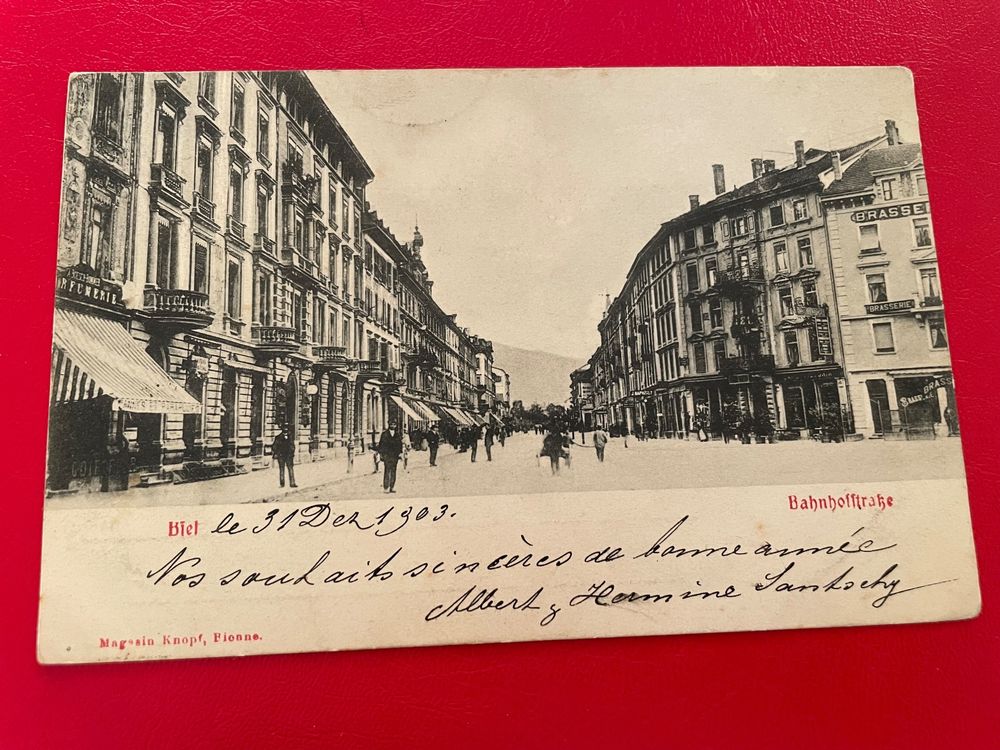 PARFUMERIE
BRASSE
BRASSERIE
BRASS
Biel le 31 Dez 1903.
Bahnhofstraße
Nos souhaits sincères de bonne année
Albert & Hermine Santschy
Magasin Knopf, Bienne.